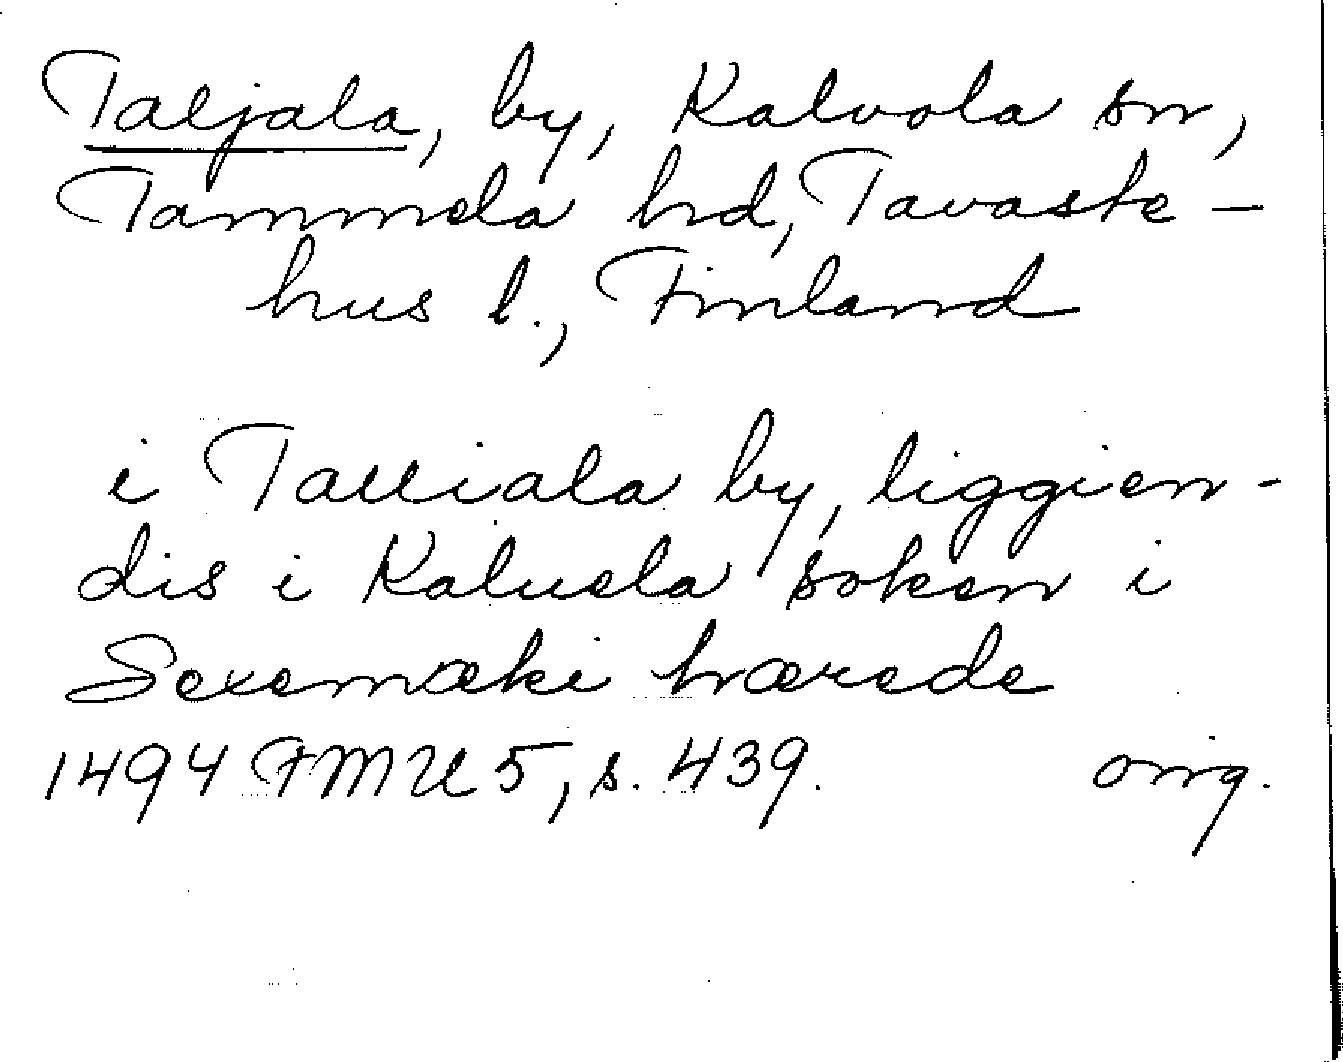 Taljala, by, Kalvola sn,
Tammela hd, Tavaste-
hus l., Finland
i Talliala by, liggien-
dis i Kaluela soken i
Sexemæki hærede
1494 FMU 5, s. 439. orig.